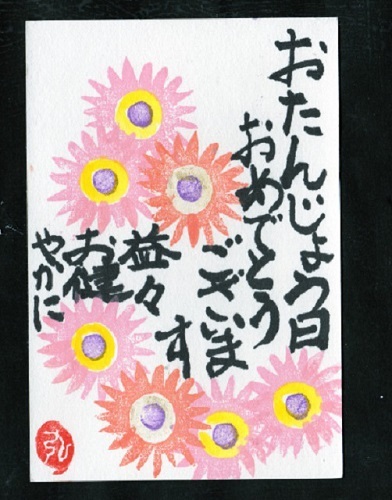 おたんじょう日
おめでとう
ございま
す
益々
お健
やかに